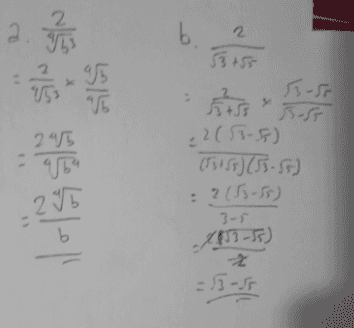 a. 2/⁴√b³
= 2/⁴√b³ × ⁴√b/⁴√b
= 2⁴√b/⁴√b⁴
= 2⁴√b/b
b. 2/(√3+√5)
= 2/(√3+√5) × (√3-√5)/(√3-√5)
= 2(√3-√5)/(√3+√5)(√3-√5)
= 2(√3-√5)/3-5
= 2(√3-√5)/-2
= √3-√5